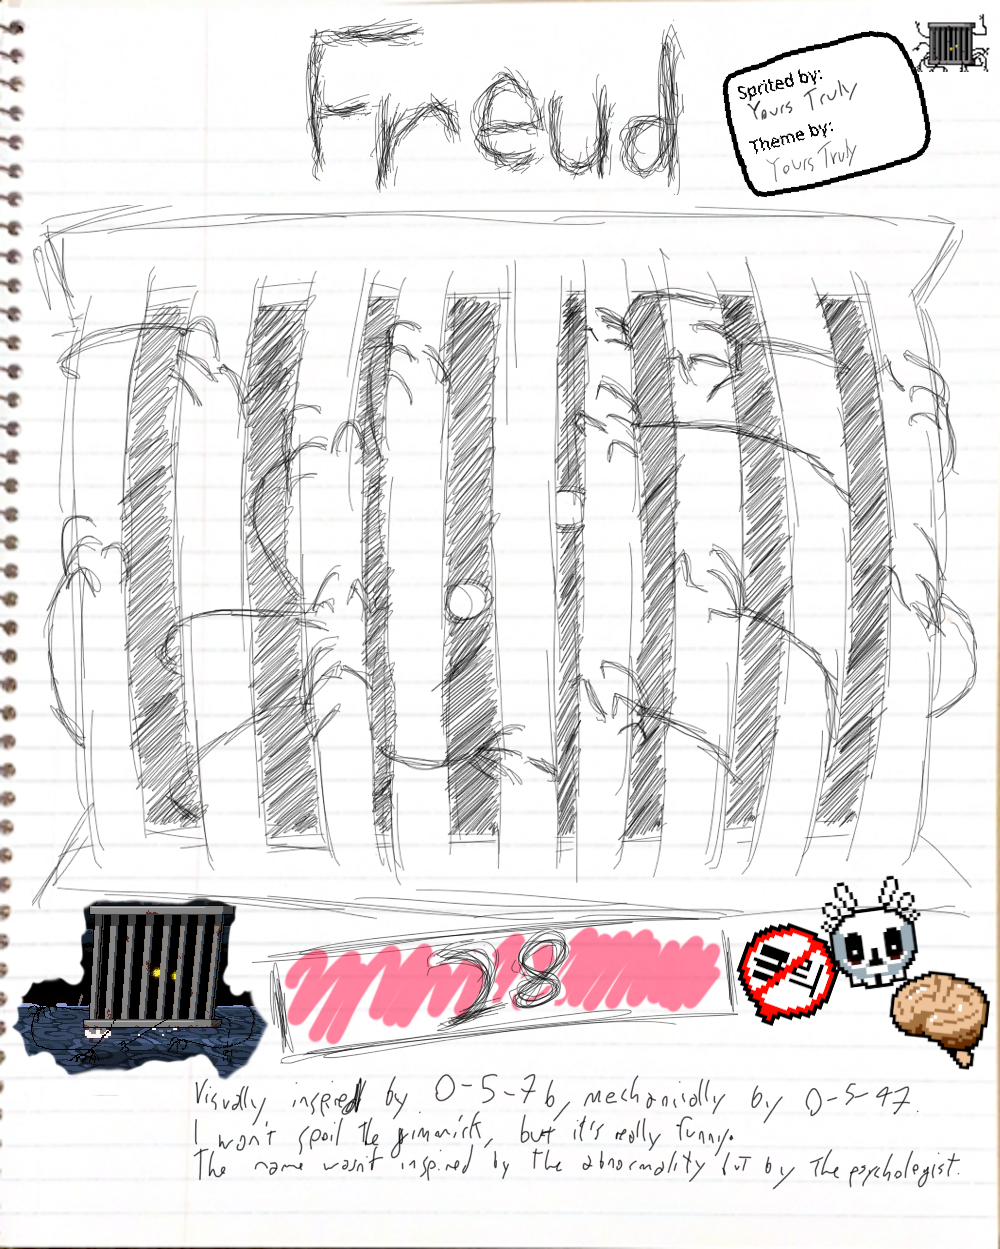 Freud
Sprited by:
Yours Truly
Theme by:
Yours Truly
28
Visually inspired by O-5-76, mechanically by O-5-47.
I won't spoil the gimmick, but it's really funny.
The name wasn't inspired by the abnormality but by the psychologist.